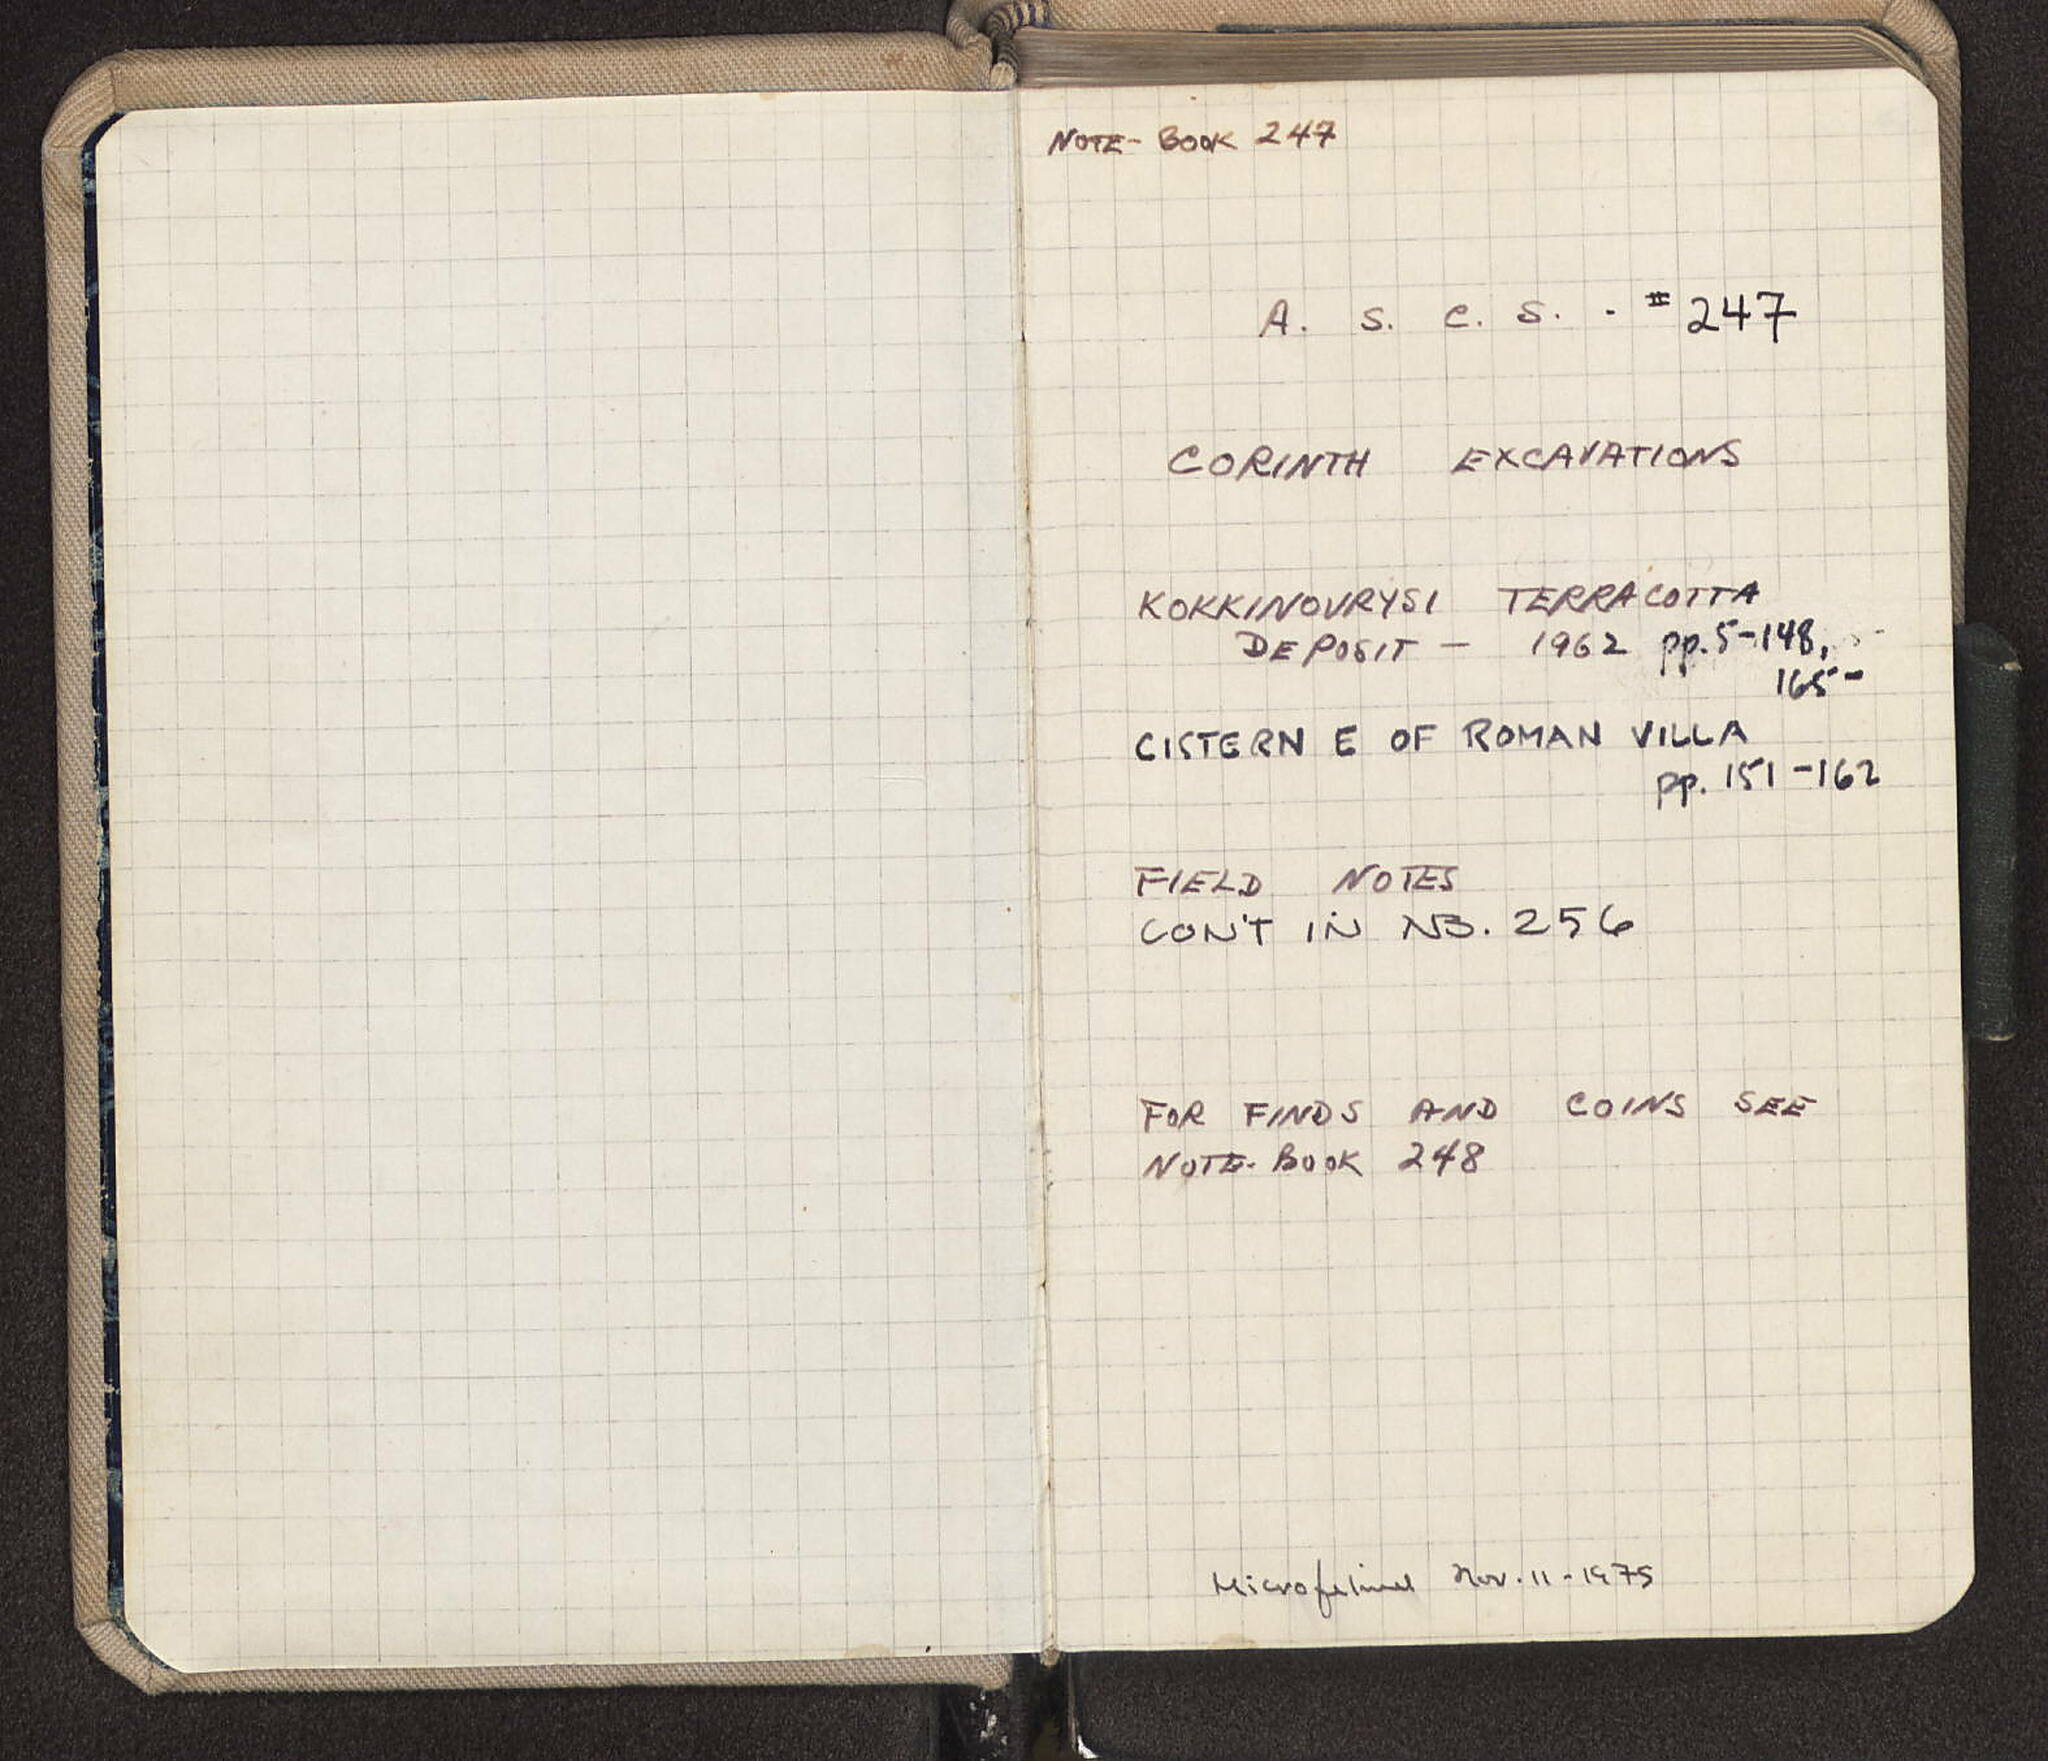 NOTE-BOOK 247
A. S. C. S. - # 247
CORINTH EXCAVATIONS
KOKKINOVRYSI TERRACOTTA
DEPOSIT - 1962 pp. 5-148,
165-
CISTERN E OF ROMAN VILLA
pp. 151-162
FIELD NOTES
CON'T IN NB. 256
FOR FINDS AND COINS SEE
NOTE-BOOK 248
Microfilmed Nov. 11-1975